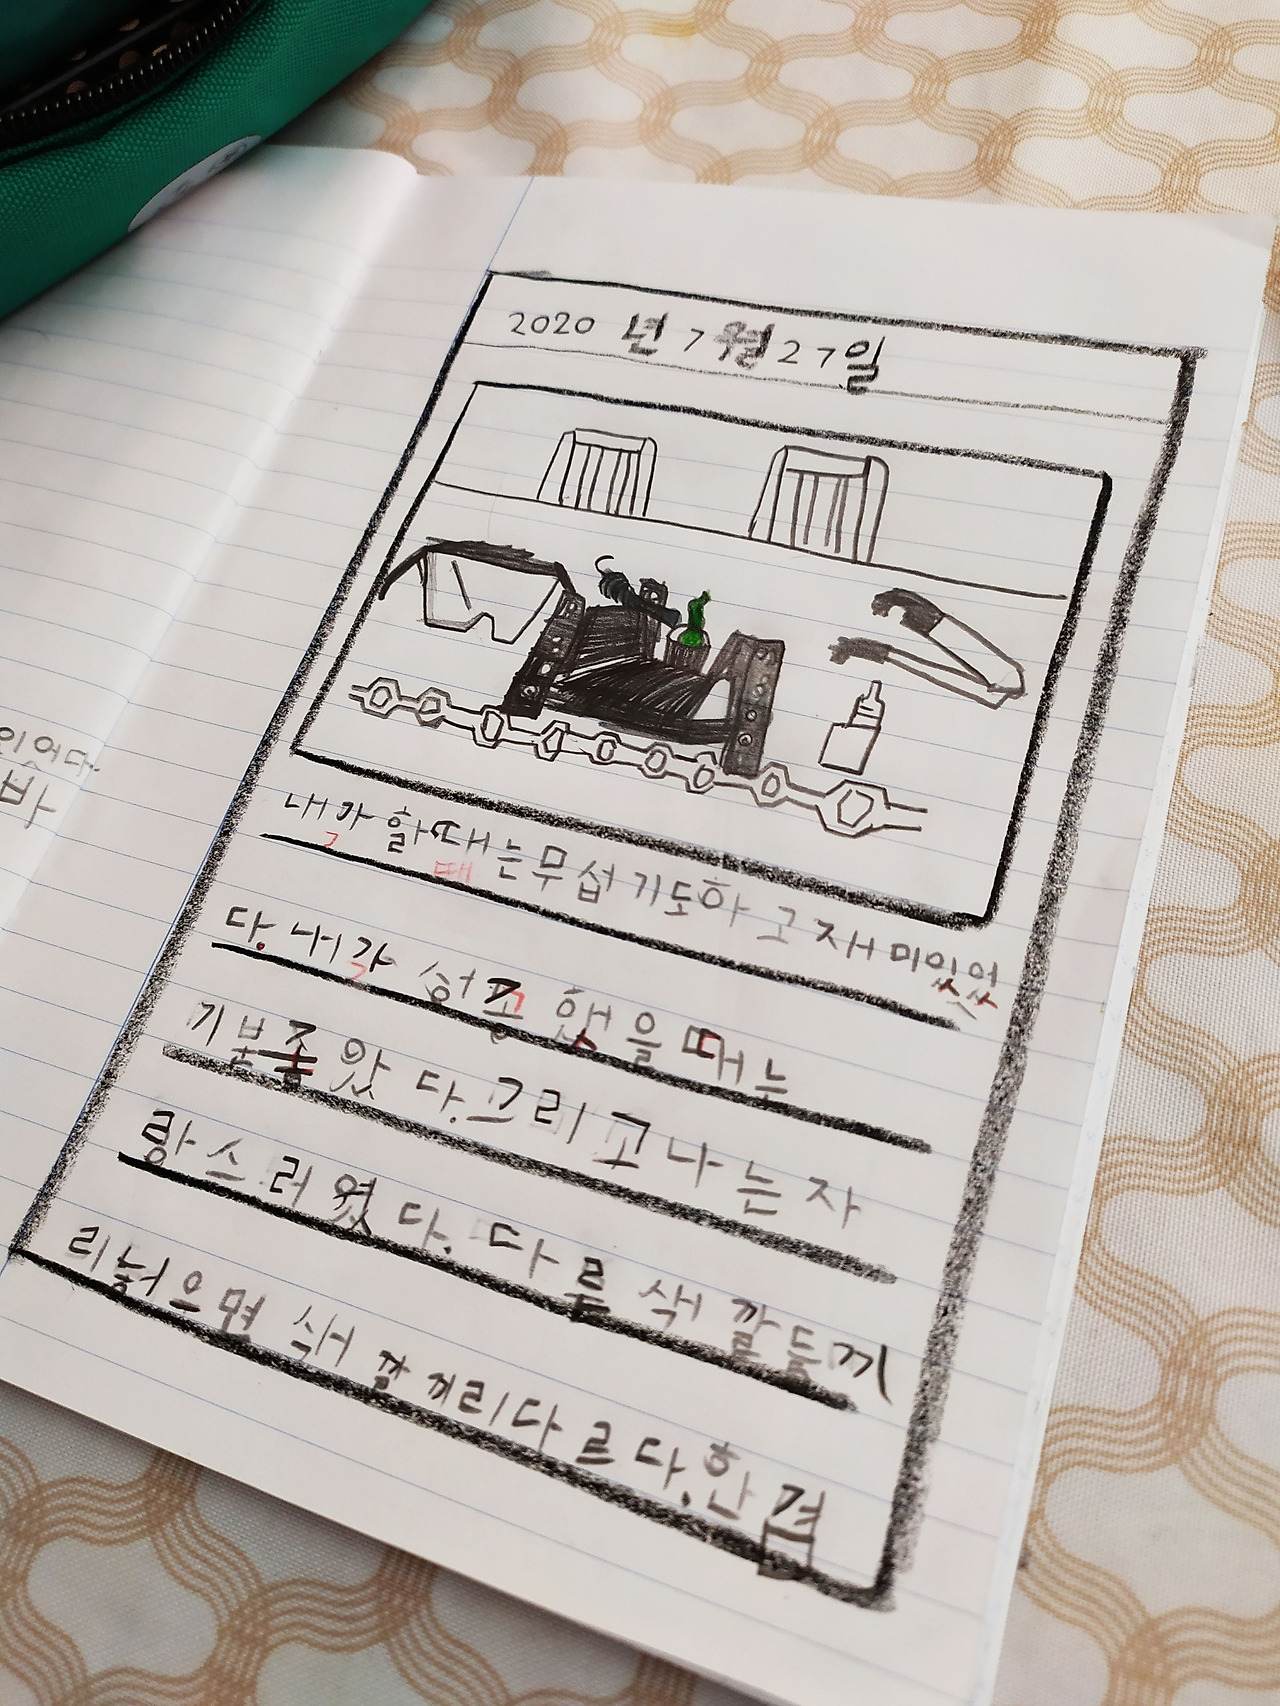 2020년 7월 27일
내가 할때는 무섭기도하고 재미있었
다. 내가 성공했을때는
기분좋았다. 그리고 나는 자
랑스러웠다. 다른색깔들끼
리 넣으면 색깔끼리 다르다. 한
이었다.
바